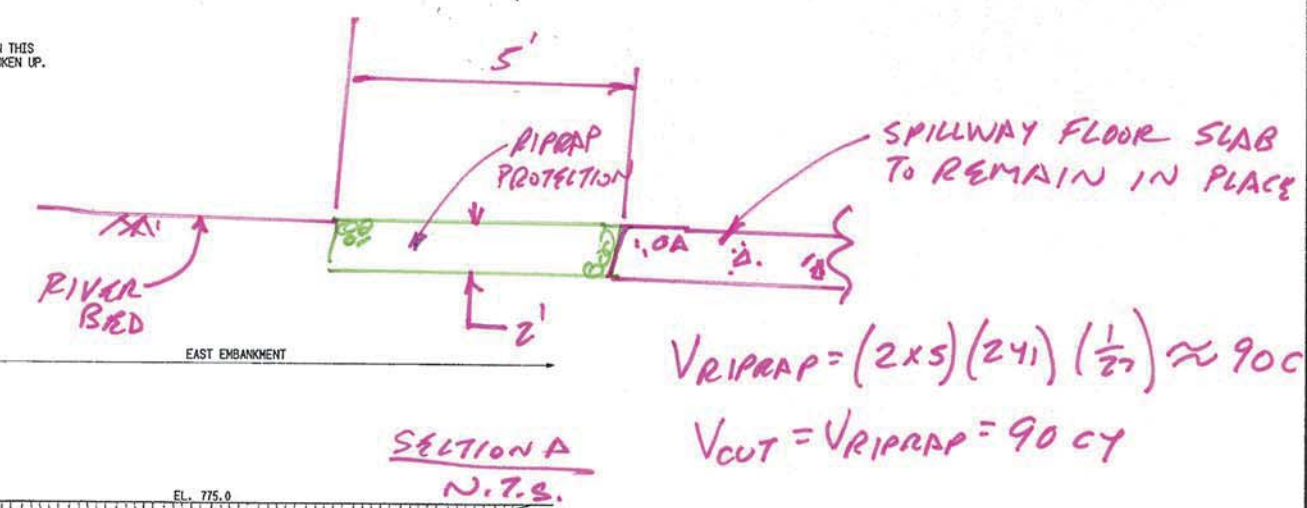 N THIS
KEN UP.
5'
RIPRAP
PROTECTION
SPILLWAY FLOOR SLAB
TO REMAIN IN PLACE
RIVER
BED
2'
EAST EMBANKMENT
V RIPRAP = (2x5)(241)(1/27) ≈ 90 C
V CUT = V RIPRAP = 90 CY
SECTION A
N.T.S.
EL. 775.0